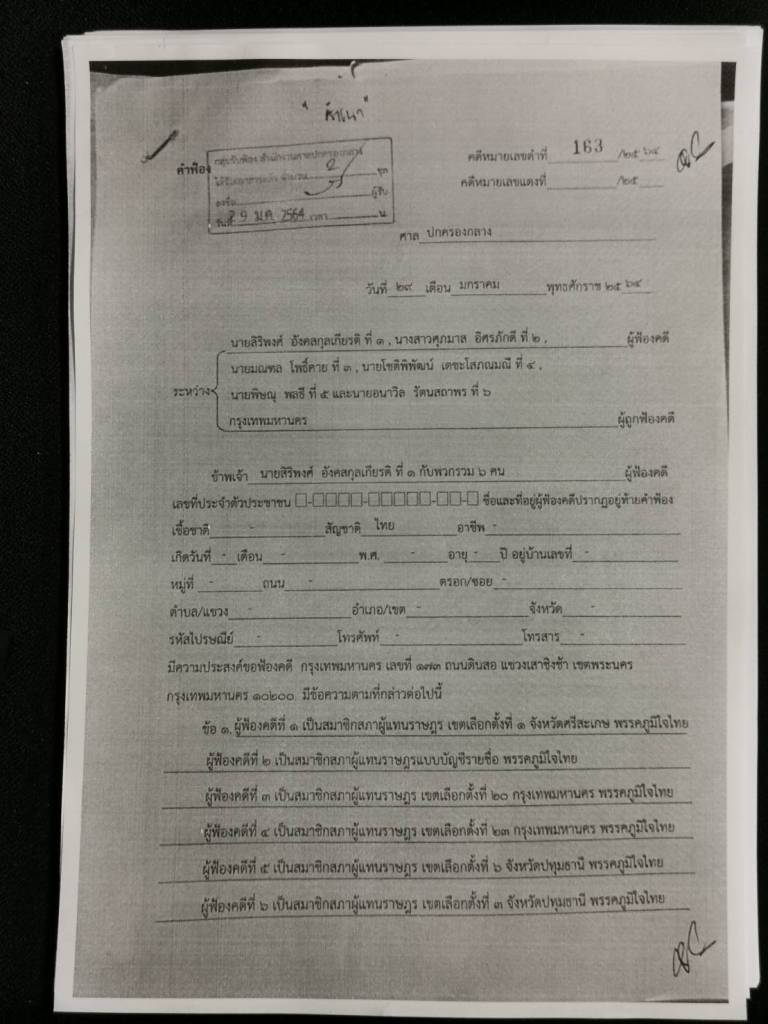 "สำเนา"
คำฟ้อง
กลุ่มรับฟ้อง สำนักงานศาลปกครองกลาง
ได้รับเอกสารแล้ว จำนวน 2 ชุด
ลงชื่อ ผู้รับ
วันที่ 29 ม.ค. 2564 เวลา น.
คดีหมายเลขดำที่ 163 /๒๕๖๔
คดีหมายเลขแดงที่ /๒๕
ศาล ปกครองกลาง
วันที่ ๒๙ เดือน มกราคม พุทธศักราช ๒๕๖๔
นายสิริพงศ์ อังคสกุลเกียรติ ที่ ๑ , นางสาวศุภมาส อิศรภักดี ที่ ๒ , ผู้ฟ้องคดี
นายมณฑล โพธิ์คาย ที่ ๓ , นายโชติพิพัฒน์ เตชะโสภณมณี ที่ ๔ ,
ระหว่าง
นายพิษณุ พลธี ที่ ๕ และนายอนาวิล รัตนสถาพร ที่ ๖
กรุงเทพมหานคร ผู้ถูกฟ้องคดี
ข้าพเจ้า นายสิริพงศ์ อังคสกุลเกียรติ ที่ ๑ กับพวกรวม ๖ คน ผู้ฟ้องคดี
เลขที่ประจำตัวประชาชน ☐-☐☐☐☐-☐☐☐☐☐-☐☐-☐ ชื่อและที่อยู่ผู้ฟ้องคดีปรากฏอยู่ท้ายคำฟ้อง
เชื้อชาติ - สัญชาติ ไทย อาชีพ -
เกิดวันที่ - เดือน - พ.ศ. - อายุ - ปี อยู่บ้านเลขที่ -
หมู่ที่ - ถนน - ตรอก/ซอย -
ตำบล/แขวง - อำเภอ/เขต - จังหวัด -
รหัสไปรษณีย์ - โทรศัพท์ - โทรสาร -
มีความประสงค์ขอฟ้องคดี กรุงเทพมหานคร เลขที่ ๑๗๓ ถนนดินสอ แขวงเสาชิงช้า เขตพระนคร
กรุงเทพมหานคร ๑๐๒๐๐ มีข้อความตามที่กล่าวต่อไปนี้
ข้อ ๑. ผู้ฟ้องคดีที่ ๑ เป็นสมาชิกสภาผู้แทนราษฎร เขตเลือกตั้งที่ ๑ จังหวัดศรีสะเกษ พรรคภูมิใจไทย
ผู้ฟ้องคดีที่ ๒ เป็นสมาชิกสภาผู้แทนราษฎรแบบบัญชีรายชื่อ พรรคภูมิใจไทย
ผู้ฟ้องคดีที่ ๓ เป็นสมาชิกสภาผู้แทนราษฎร เขตเลือกตั้งที่ ๒๐ กรุงเทพมหานคร พรรคภูมิใจไทย
ผู้ฟ้องคดีที่ ๔ เป็นสมาชิกสภาผู้แทนราษฎร เขตเลือกตั้งที่ ๒๓ กรุงเทพมหานคร พรรคภูมิใจไทย
ผู้ฟ้องคดีที่ ๕ เป็นสมาชิกสภาผู้แทนราษฎร เขตเลือกตั้งที่ ๖ จังหวัดปทุมธานี พรรคภูมิใจไทย
ผู้ฟ้องคดีที่ ๖ เป็นสมาชิกสภาผู้แทนราษฎร เขตเลือกตั้งที่ ๓ จังหวัดปทุมธานี พรรคภูมิใจไทย